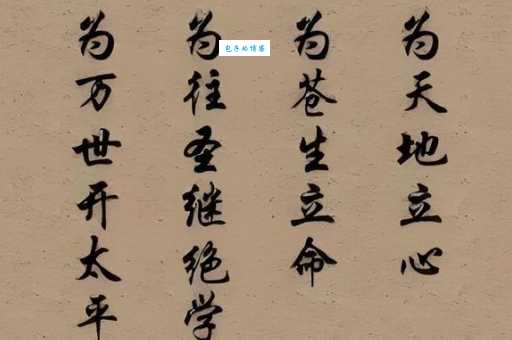 为天地立心
为苍生立命
为往圣继绝学
为万世开太平
包子的博客